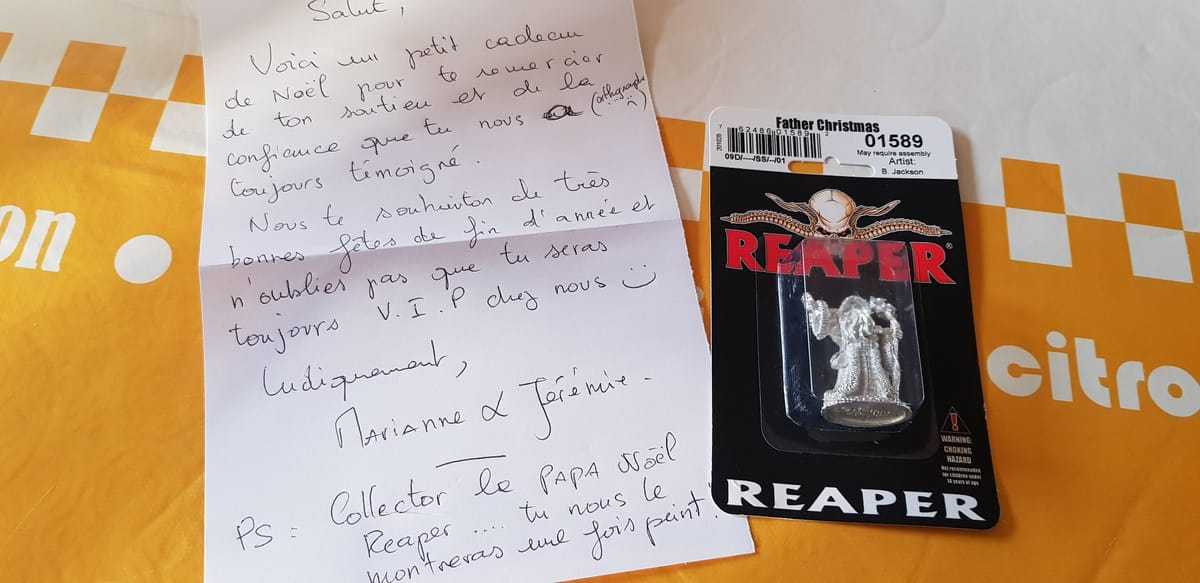 Salut,
Voici un petit cadeau
de Noël pour te remercier
de ton soutien et de la
confiance que tu nous a (orthographe
toujours témoigné.
Nous te souhaiton de très
bonnes fêtes de fin d'année et
n'oublies pas que tu seras
toujours V.I.P chez nous
Ludiquement,
MARIANNE & Jérémie.
PS : Collector le PAPA Noël
Reaper .... tu nous le
montreras une fois peint!
Father Christmas
01589
May require assembly
Artist:
B. Jackson
09D/----/SS/--/01
REAPER®
WARNING:
CHOKING
HAZARD
Not recommended
for children under
14 years of age
REAPER
on
citro